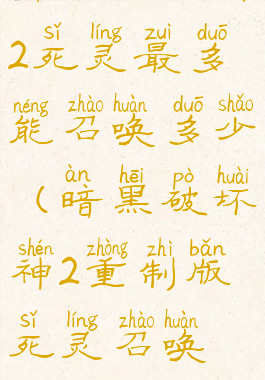 sǐ líng zuì duō
2死灵最多
néng zhào huàn duō shǎo
能召唤多少
àn hēi pò huài
(暗黑破坏
shén zhòng zhì bǎn
神2重制版
sǐ líng zhào huàn
死灵召唤